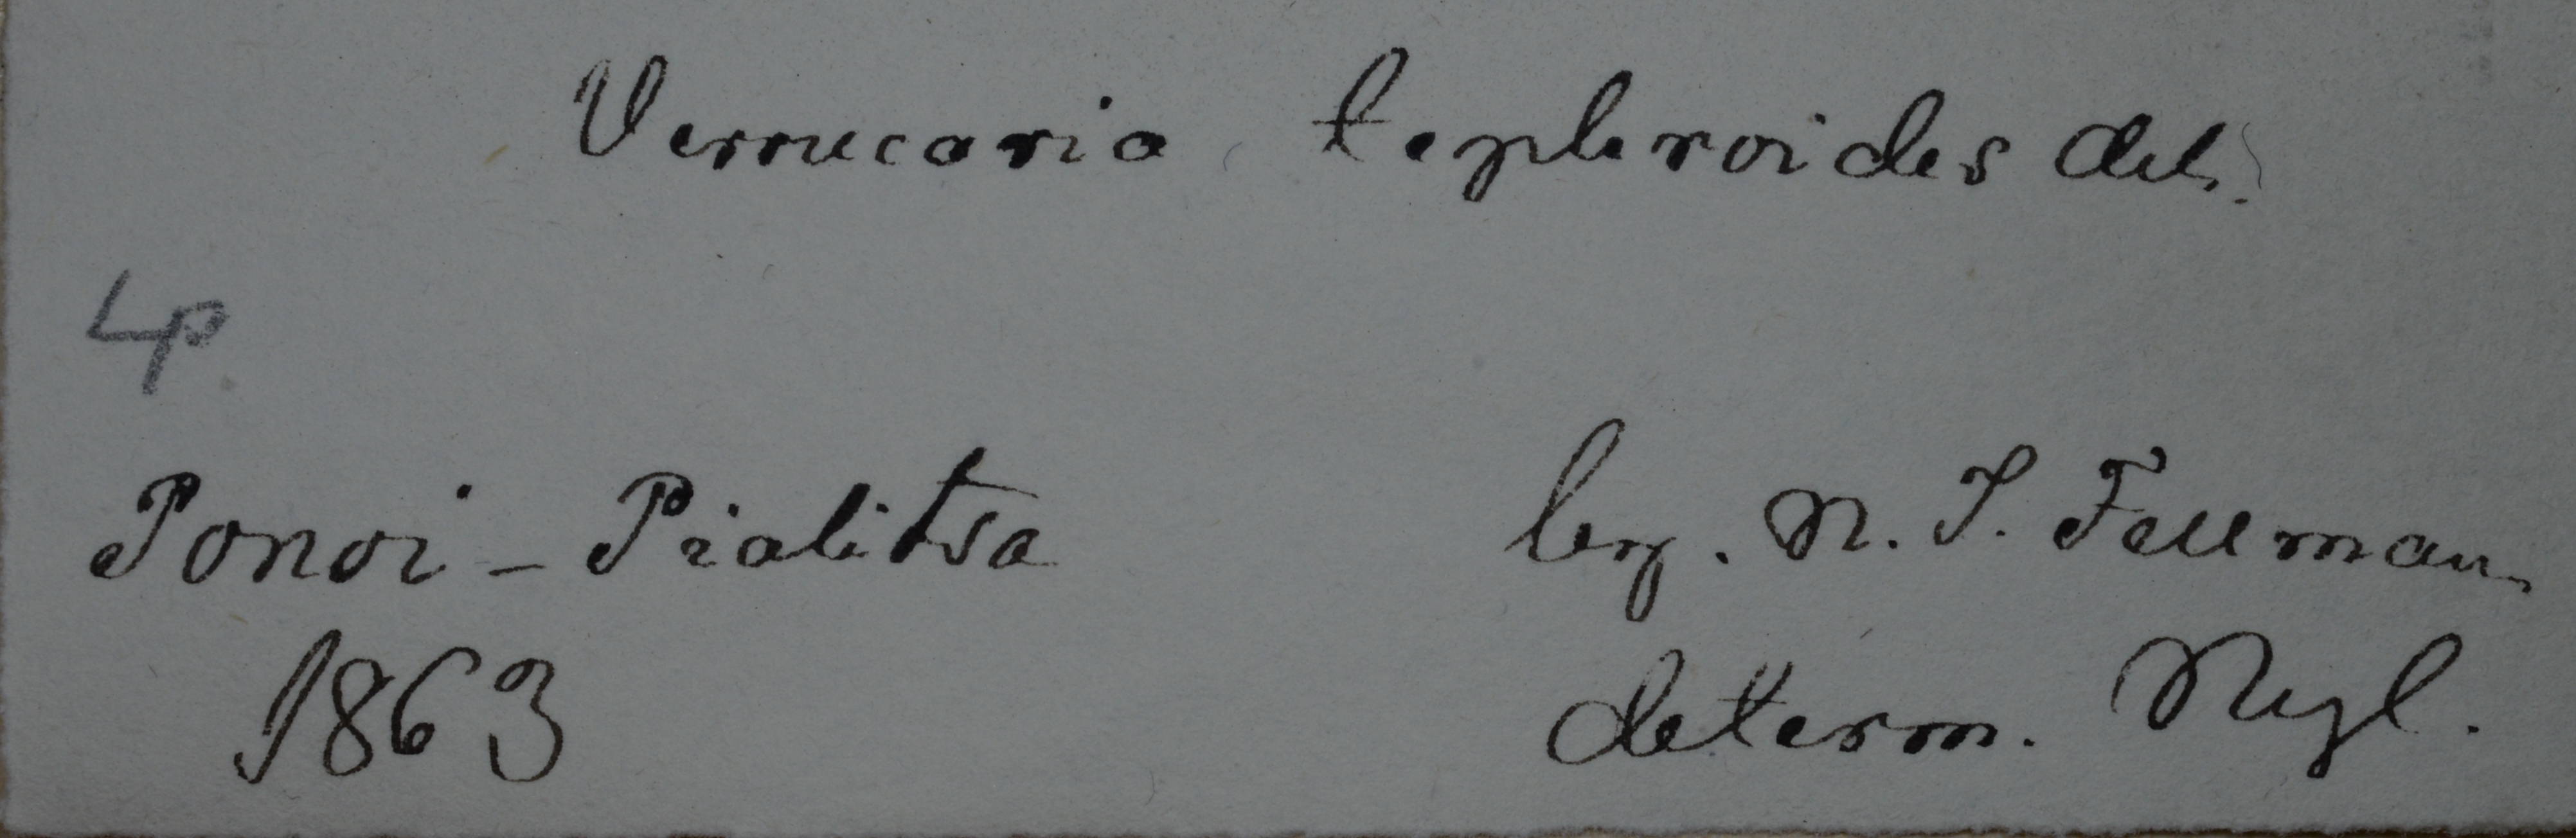 Verrucaria tephroides Ach.
Lp
Ponoi - Pialitsa
leg. N. I. Fellman
1863
determ. Nyl.